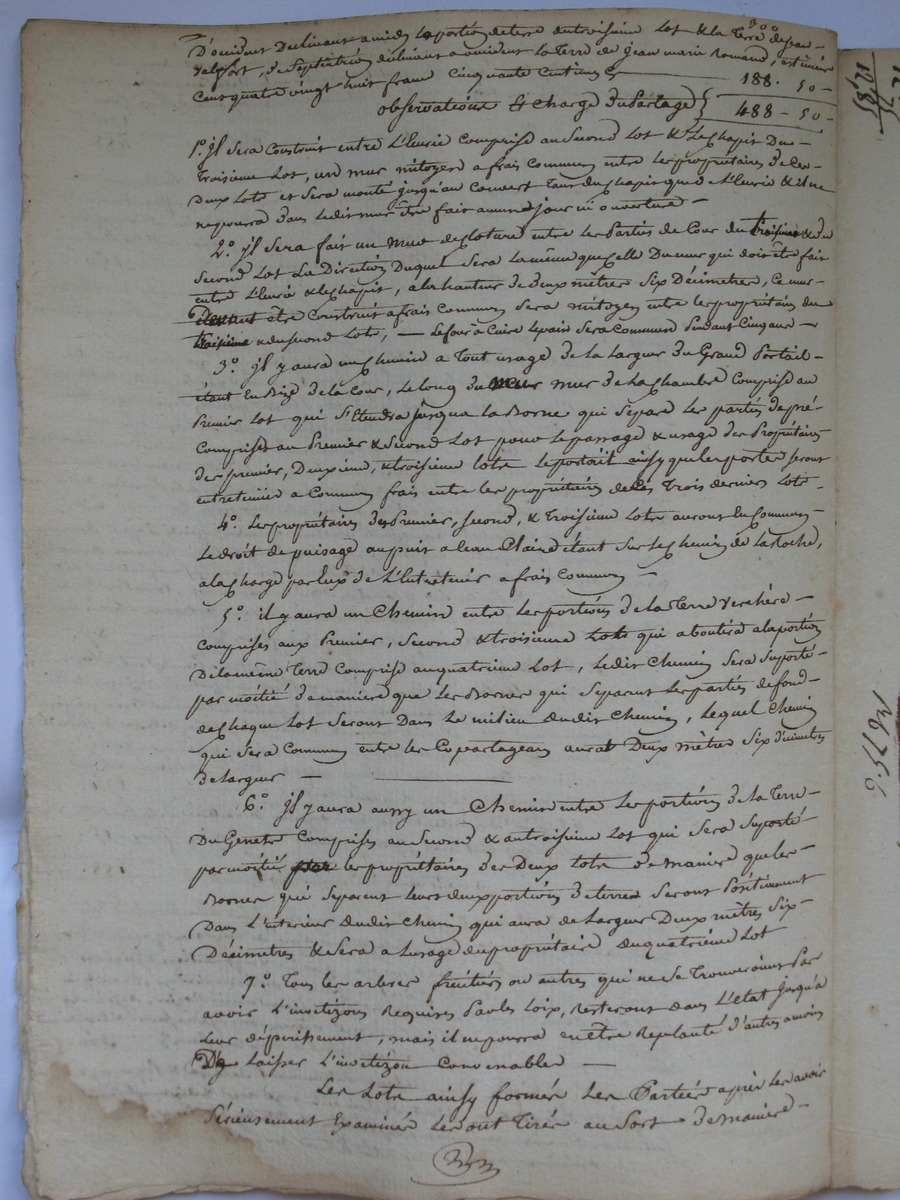 300
D'occident declinant a midy la portion de terre du troisieme Lot & la Terre de jean
valfort, de septentrion declinant a occident la Terre de jean marie Romand, estimée
Cent quatre vingt huit franc Cinquante Centimes 188. 50
observations & charge du Partage 488 - 50
1.º jl sera Construit entre l'Ecurie Comprise au second Lot & le chapit du
troisieme Lot, un mur mitoyen a frais Commun entre les propriétaires de ces
deux Lots et sera monté jusqu'au Couvert tant du chapit que de l'Ecurie & il ne
se pourra dans ledit mur être fait aucun jour ni ouverture
2.º jl sera fait un mur de cloture entre les Parties de Cour du troisieme & du
second Lot La Direction Duquel sera la même que Celle Du mur qui doit être fait
entre l'Ecurie & le chapit, a la hauteur de deux mètres six Décimetres, Ce mur
être Construit a frais Commun sera mitoyen entre les propriétaires du
troisieme & du second Lots, — Le four à Cuire le pain sera Commun pendant Cinq ans
3.º jl y aura un chemin a tout usage de la largeur du Grand Portail
étant En Bize de la Cour, le long du mur de la Chambre Comprise au
Premier Lot qui s'Etendra jusqua la Borne qui sépare les parties de pré
Comprises au Premier & second Lot pour le passage & usage des Propriétaires
des premier, Deuxieme, & troisieme lots le portail ainsy que les portes seront
entretenües a Commun frais entre les propriétaires de Ces Trois derniers Lots
4.º Les propriétaires des Premier, second, & Troisieme Lots auront En Commun
Le droit de puisage au puit a eau Claire étant sur le chemin de La Roche,
a la charge par Eux de l'Entretenir a frais Commun
5.º il y aura un Chemin entre les portions de la Terre verchere
Comprises aux Premier, second & troisieme Lots qui aboutira a la portion
De la même Terre Comprise au quatrieme Lot, Ledit Chemin sera suporté
par moitié de maniere que les Bornes qui séparent les parties de fond
de chaque Lot seront Dans Le milieu dudit Chemin, Lequel Chemin
qui sera Commun entre les Copartageans aurat Deux mètres six décimetres
de largeur
6.º jl y aura aussy un Chemin entre les portions de la Terre
Du Genete Comprises au second & au troisieme Lot qui sera suporté
par moitié par les propriétaires des Deux Lots de maniere que les
Bornes qui séparent leurs deux portions de terres seront
Dans L'interieur dudit Chemin qui aura de largeur Deux mètres six
Décimetres & sera a l'usage du propriétaire du quatrieme Lot
7.º Tous les arbres fruitiers ou autres qui ne se Trouveroint Pas
avoir L'invetizon Requises Par les Loix, Resteront dans L'Etat jusqu'a
Leur dépérissement, mais il ne pourra en être Replanté d'autres a moins
D'y Laisser L'invetizon Convenables
Les Lots ainsy formés les Parties après les avoir
sérieusement Examinés les ont Tirés au Sort de maniere